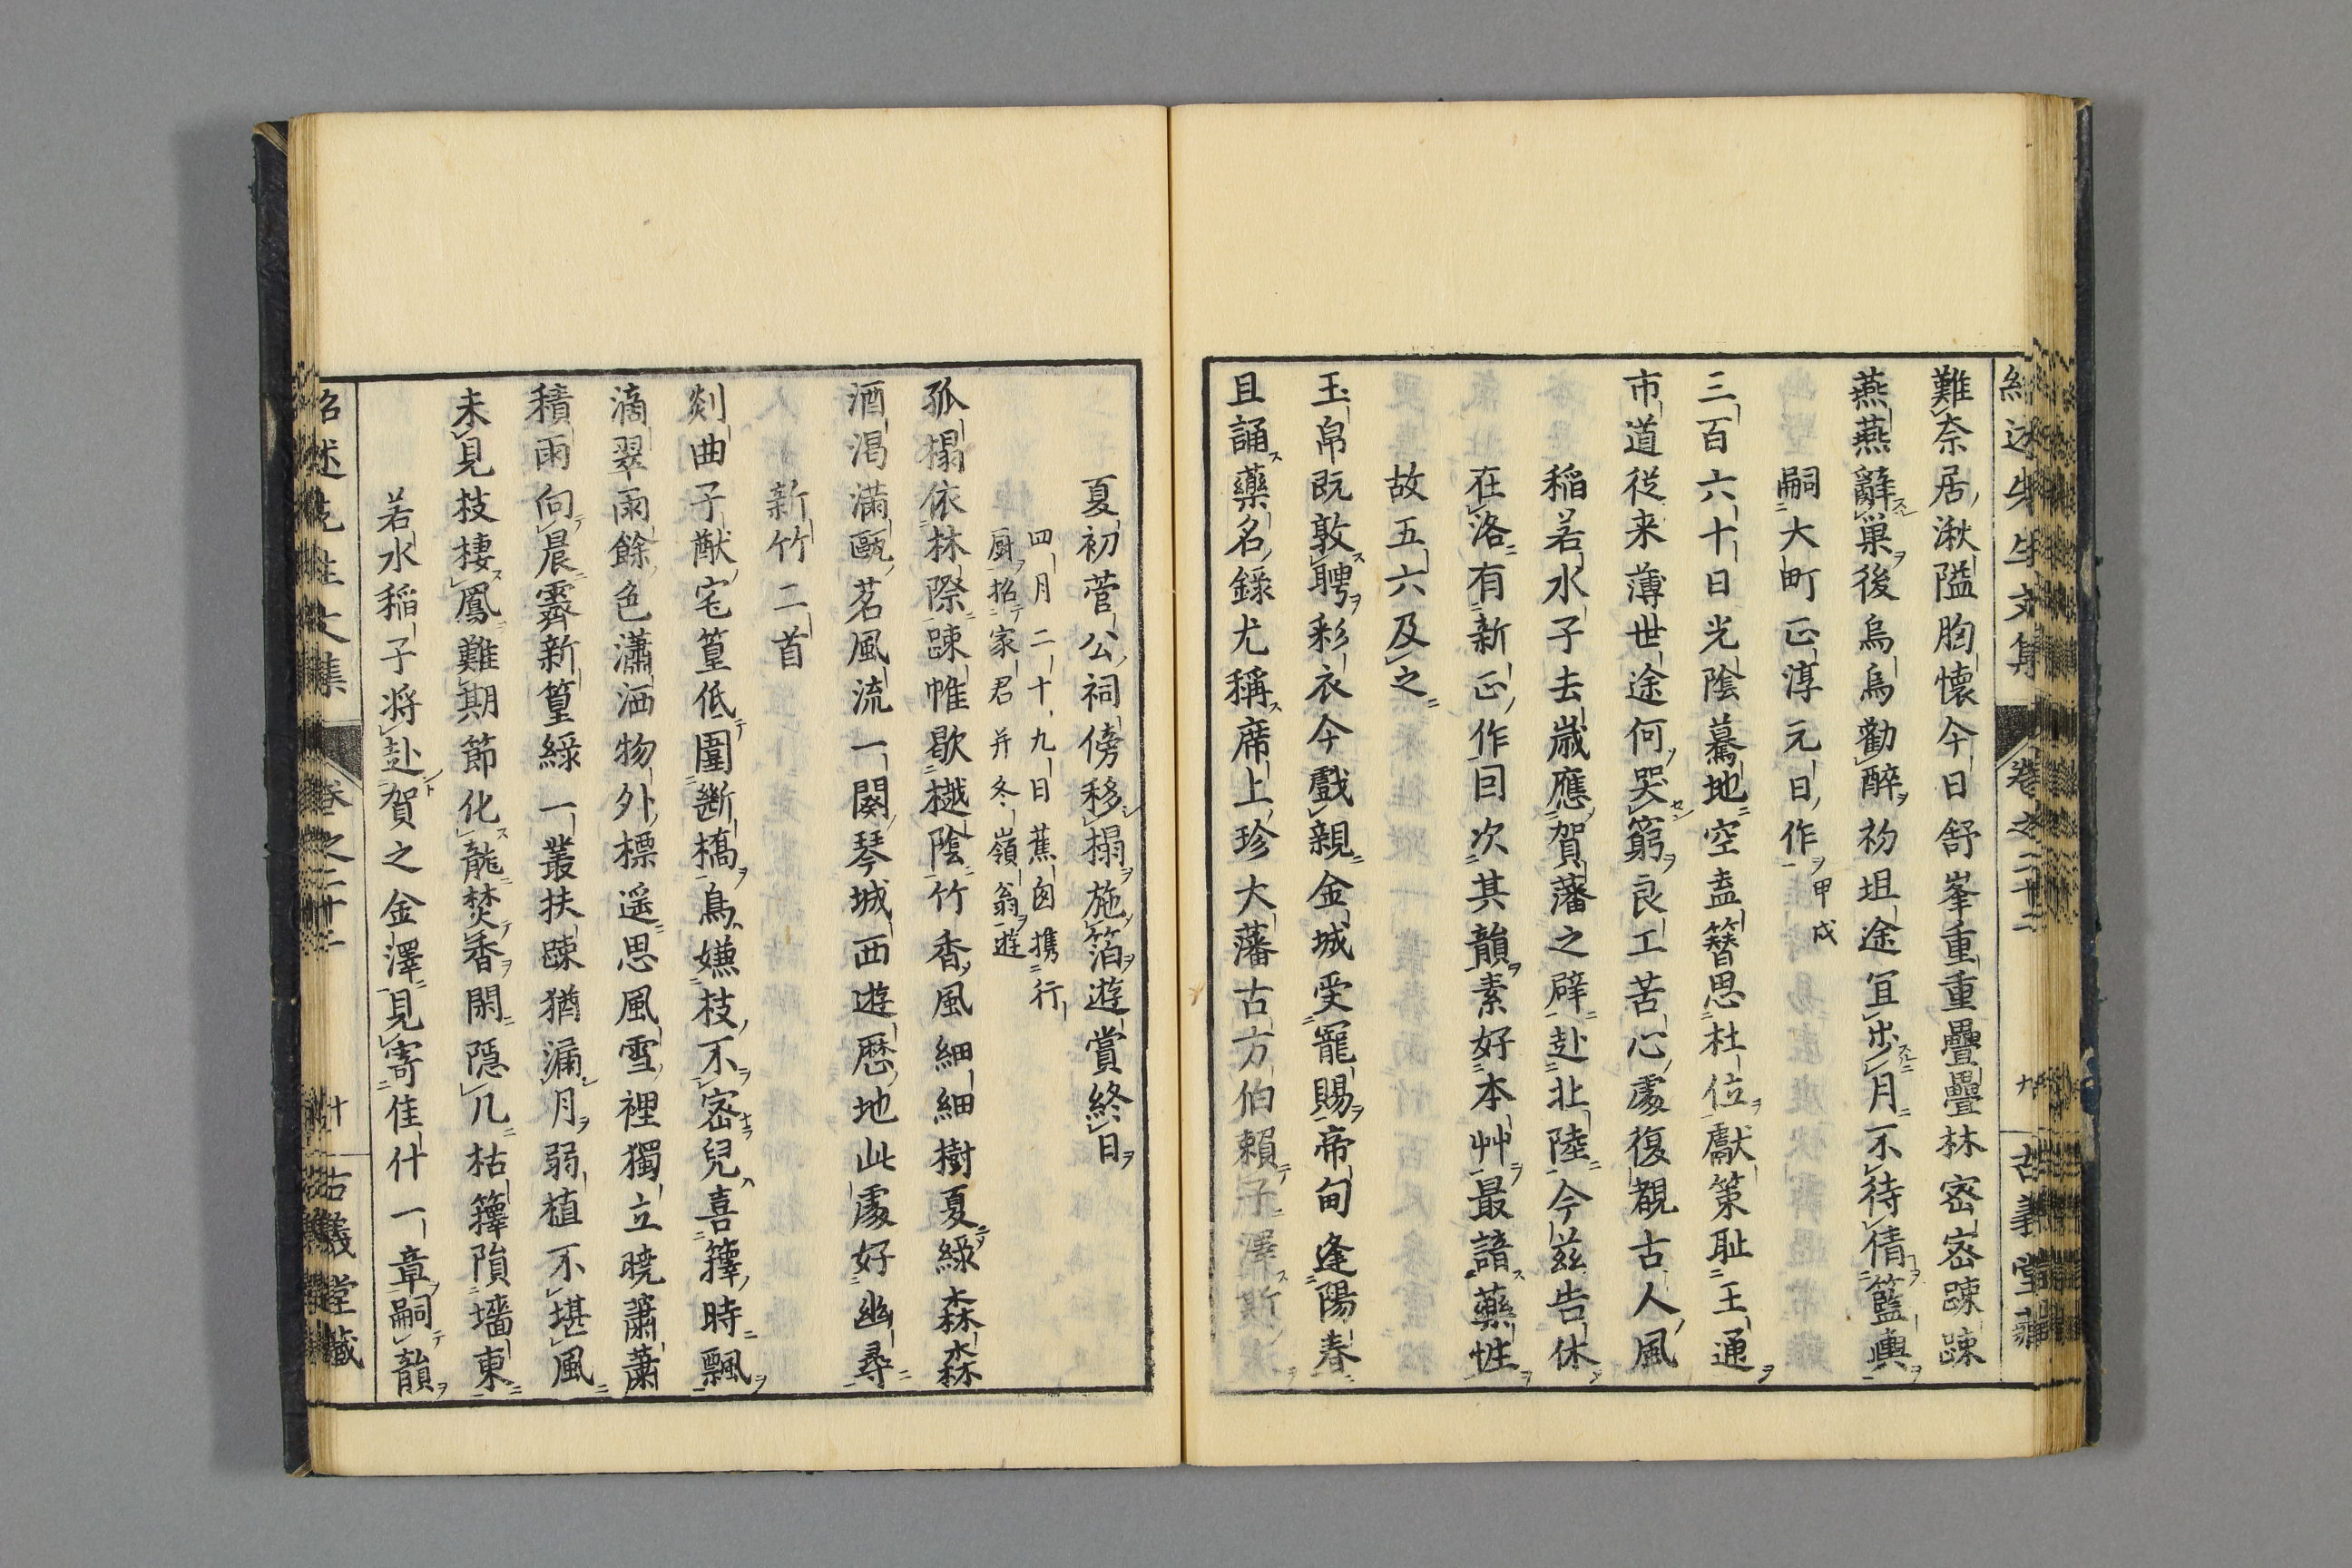 難奈居湫隘胸懷今日舒峯重重疊疊林密密踈踈
燕燕辭巢後烏烏勸醉初坦途宜步月不待倩籃輿
嗣大町正淳元日作甲戌
三百六十日光陰驀地空盍簪思杜位獻策耻王通
市道從来薄世途何哭窮良工苦心處復覩古人風
稲若水子去歳應賀藩之辟赴北陸今茲告休
在洛有新正作因次其韻素好本艸最諳藥性
故五六及之
玉帛既敦聘彩衣今戲親金城受寵賜帝甸逢陽春
且誦藥名錄尤稱席上珍大藩古方伯賴子澤斯
紹述先生文集
卷之二十二
九
古義堂藏
夏初菅公祠傍移榻施箔遊賞終日
四月二十九日蕉囱携行
厨招家君并冬嶺翁遊
孤榻依林際踈帷歇樾陰竹香風細細樹夏綠森森
酒渇滿甌茗風流一闋琴城西遊歷地此處好幽尋
新竹二首
剡曲子猷宅篁低圍斷橋鳥嫌枝不密兒喜籜時飄
滴翠雨餘色瀟洒物外標遥思風雪裡獨立曉蕭蕭
積雨向晨霽新篁綠一叢扶踈猶漏月弱植不堪風
未見枝棲鳳難期節化龍焚香閑隱几枯籜隕墻東
若水稲子將赴賀之金澤見寄佳什一章嗣韻
紹述先生文集
卷之二十二
十
古義堂藏